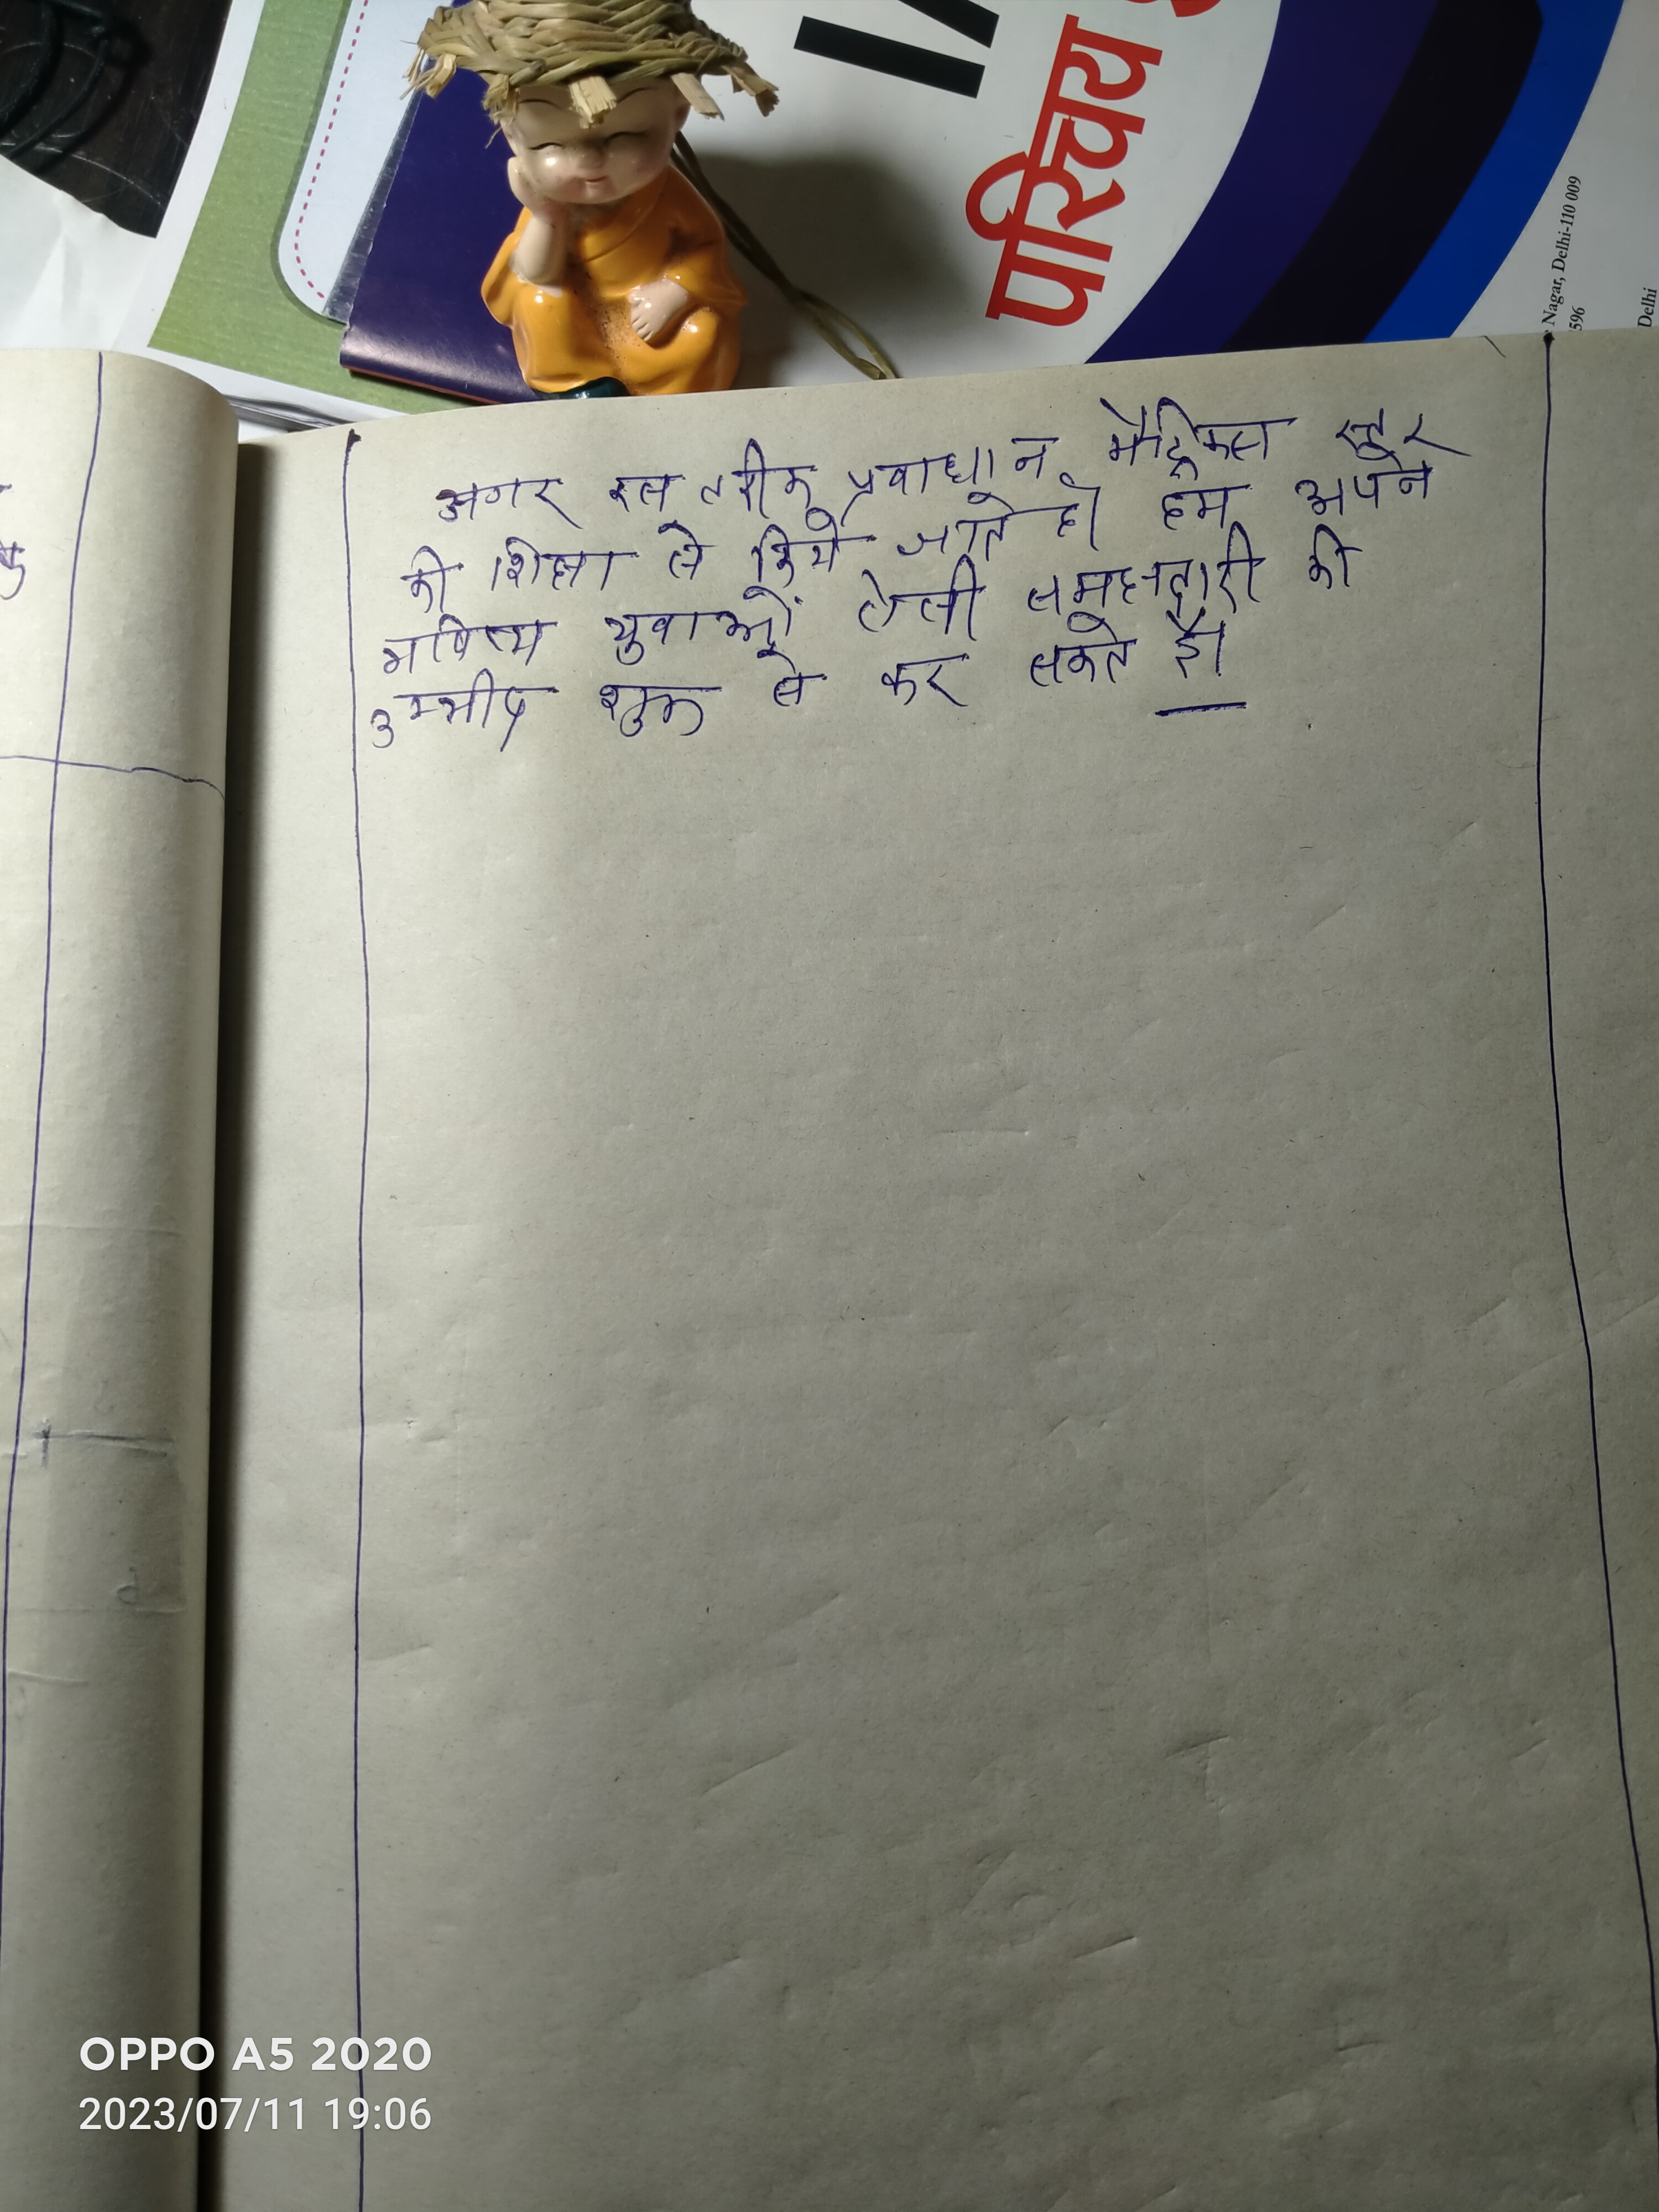 परिचय
Nagar, Delhi-110 009
596
Delhi
अगर इस तरीके प्रवाधान मैट्रिक्स स्तर
की शिक्षा से किये जाते हो हम अपने
भविष्य युवाओं ऐसी समझदारी की
उम्मीद शुरू से कर सकते हैं।
OPPO A5 2020
2023/07/11 19:06